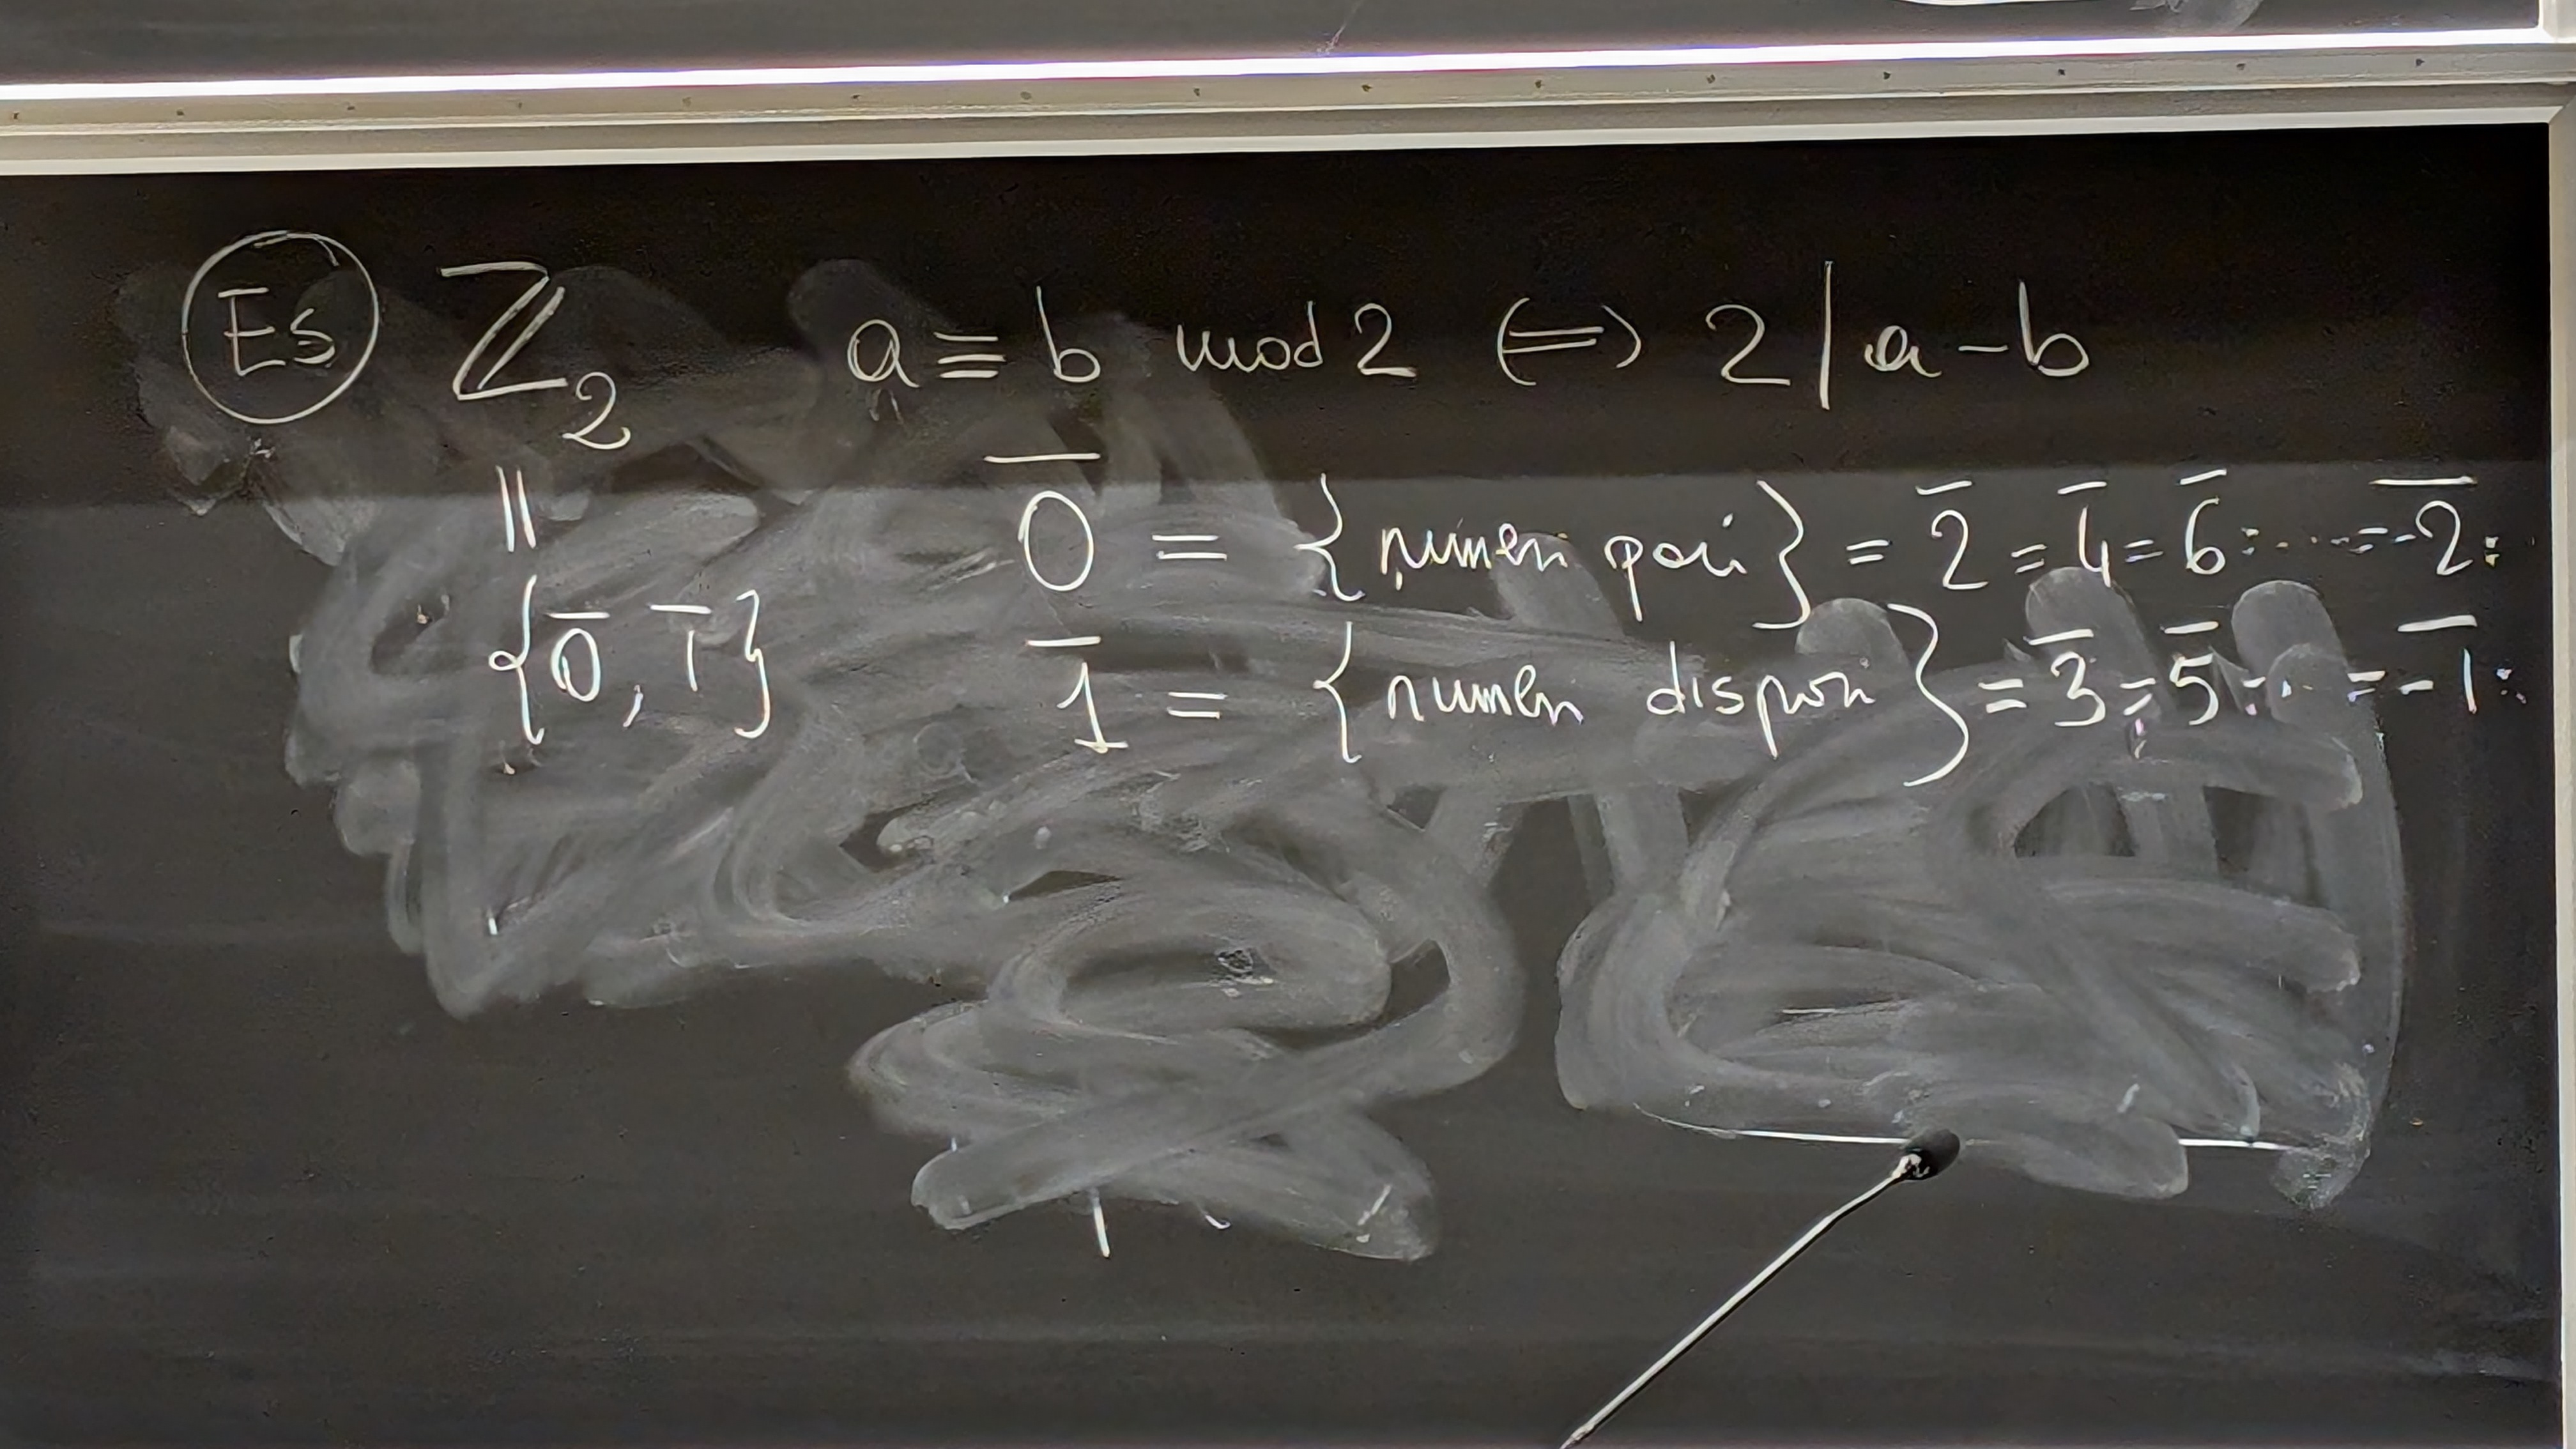 Es ℤ₂ a ≡ b mod 2 ⟺ 2 | a-b
|| 0̅ = {numeri pari} = 2̅ = 4̅ = 6̅ = ... = -̅2̅ =
{0̅, 1̅} 1̅ = {numeri dispari} = 3̅ = 5̅ = ... = -̅1̅ =